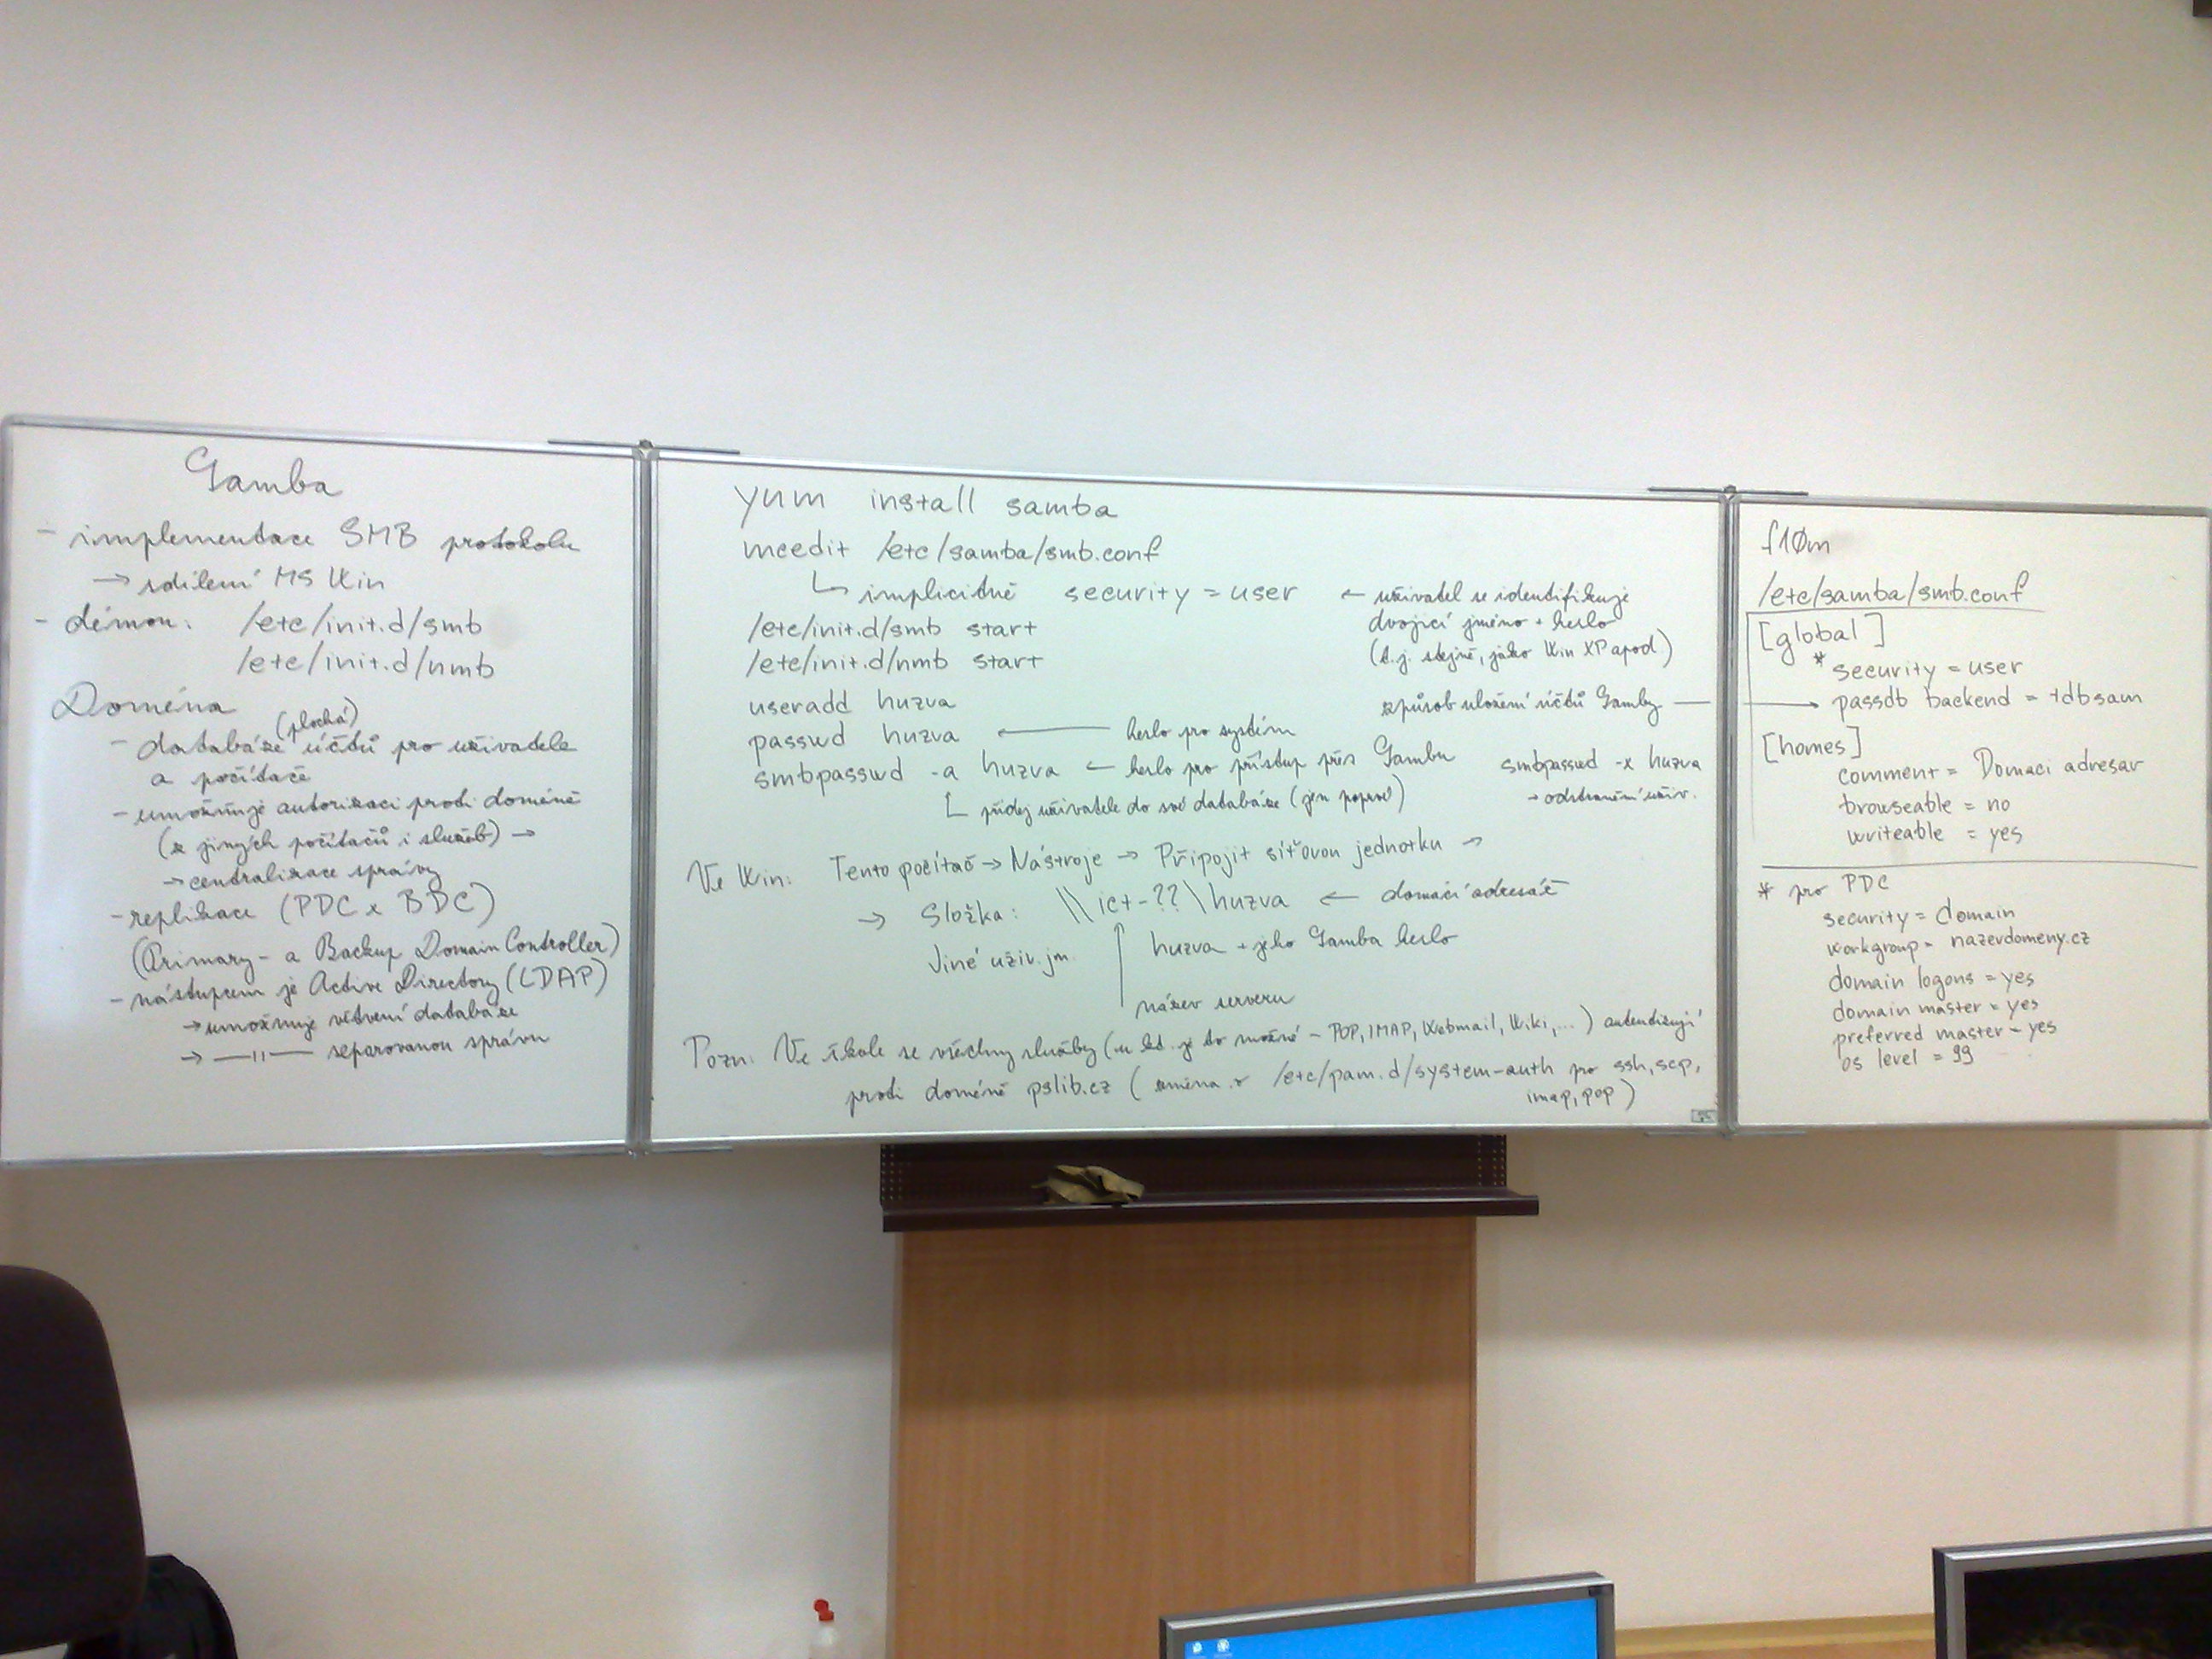 Samba
- implementace SMB protokolu
→ sdílení MS Win
- démon: /etc/init.d/smb
/etc/init.d/nmb
Doména
(plochá)
- databáze účtů pro uživatele
a počítače
- umožňuje autorizaci proti doméně
(z jiných počítačů i služeb) →
→ centralizace správy
- replikace (PDC x BDC)
(Primary- a Backup Domain Controller)
- nástupcem je Active Directory (LDAP)
→ umožňuje větvení databáze
→ —〃— separovanou správu
yum install samba
mcedit /etc/samba/smb.conf
↳ implicitně security = user ← uživatel se identifikuje
dvojicí jméno + heslo
(t.j. stejně, jako Win XP apod)
/etc/init.d/smb start
/etc/init.d/nmb start
useradd huzva
způsob uložení účtů Samby →
passwd huzva ← heslo pro systém
smbpasswd -a huzva ← heslo pro přístup přes Sambu
přidej uživatele do své databáze (jen poprvé)
smbpasswd -x huzva
→ odstranění uživ.
Ve Win: Tento počítač → Nástroje → Připojit síťovou jednotku →
→ Složka: \\ict-??\huzva ← domácí adresář
Jiné uživ. jm. huzva + jeho Samba heslo
název serveru
Pozn: Ve škole se všechny služby (u kt. je to možné - POP, IMAP, Webmail, Wiki, ...) autentizují
proti doméně pslib.cz (změna v /etc/pam.d/system-auth pro ssh, scp,
imap, pop)
f10m
/etc/samba/smb.conf
[global]
* security = user
passdb backend = tdbsam
[homes]
comment = Domaci adresar
browseable = no
writeable = yes
* pro PDC
security = domain
workgroup = nazevdomeny.cz
domain logons = yes
domain master = yes
preferred master = yes
os level = 99